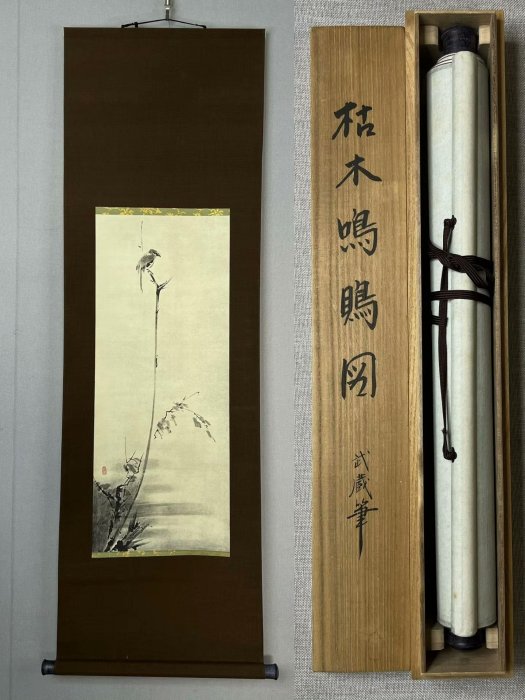 枯木鳴鵙図
武蔵筆